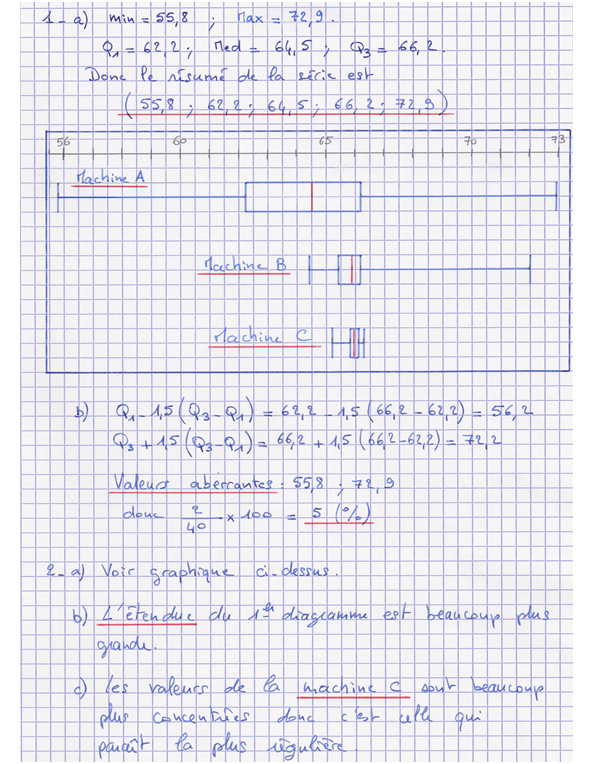 1-a) min = 55,8 ; Max = 72,9.
Q1 = 62,2 ; Med = 64,5 ; Q3 = 66,2.
Donc le résumé de la série est
(55,8 ; 62,2 ; 64,5 ; 66,2 ; 72,9)
56 60 65 70 73
Machine A
Machine B
Machine C
b) Q1 - 1,5 (Q3 - Q1) = 62,2 - 1,5 (66,2 - 62,2) = 56,2
Q3 + 1,5 (Q3 - Q1) = 66,2 + 1,5 (66,2 - 62,2) = 72,2
Valeurs aberrantes : 55,8 ; 72,9
donc 2/40 × 100 = 5 (%)
2-a) Voir graphique ci-dessus.
b) L'étendue du 1er diagramme est beaucoup plus
grande.
c) les valeurs de la machine C sont beaucoup
plus concentrées donc c'est celle qui
paraît la plus régulière.